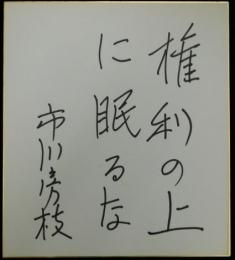 権利の上
に眠るな
市川房枝